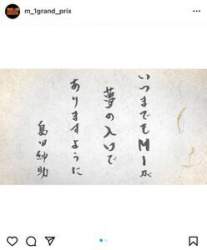 m_1grand_prix
いつまでもM1が
夢の入口で
ありますように
島田紳助